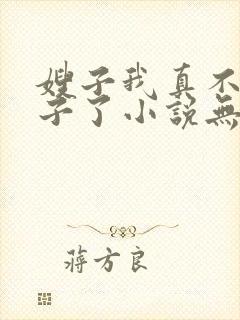 嫂子我真不
子了小說無
蔣方良